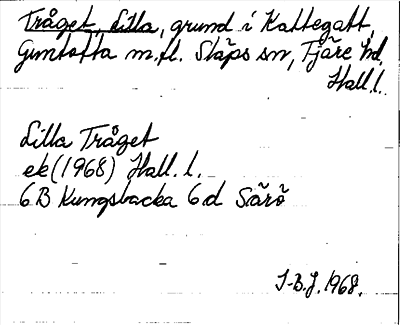 Tråget, Lilla, grund i Kattegatt,
Gumtofta m.fl. Släps sn, Fjäre hd.
Hall.l.
Lilla Tråget
ek (1968) Hall. l.
6B Kungsbacka 6d Särö
I-B.J. 1968.